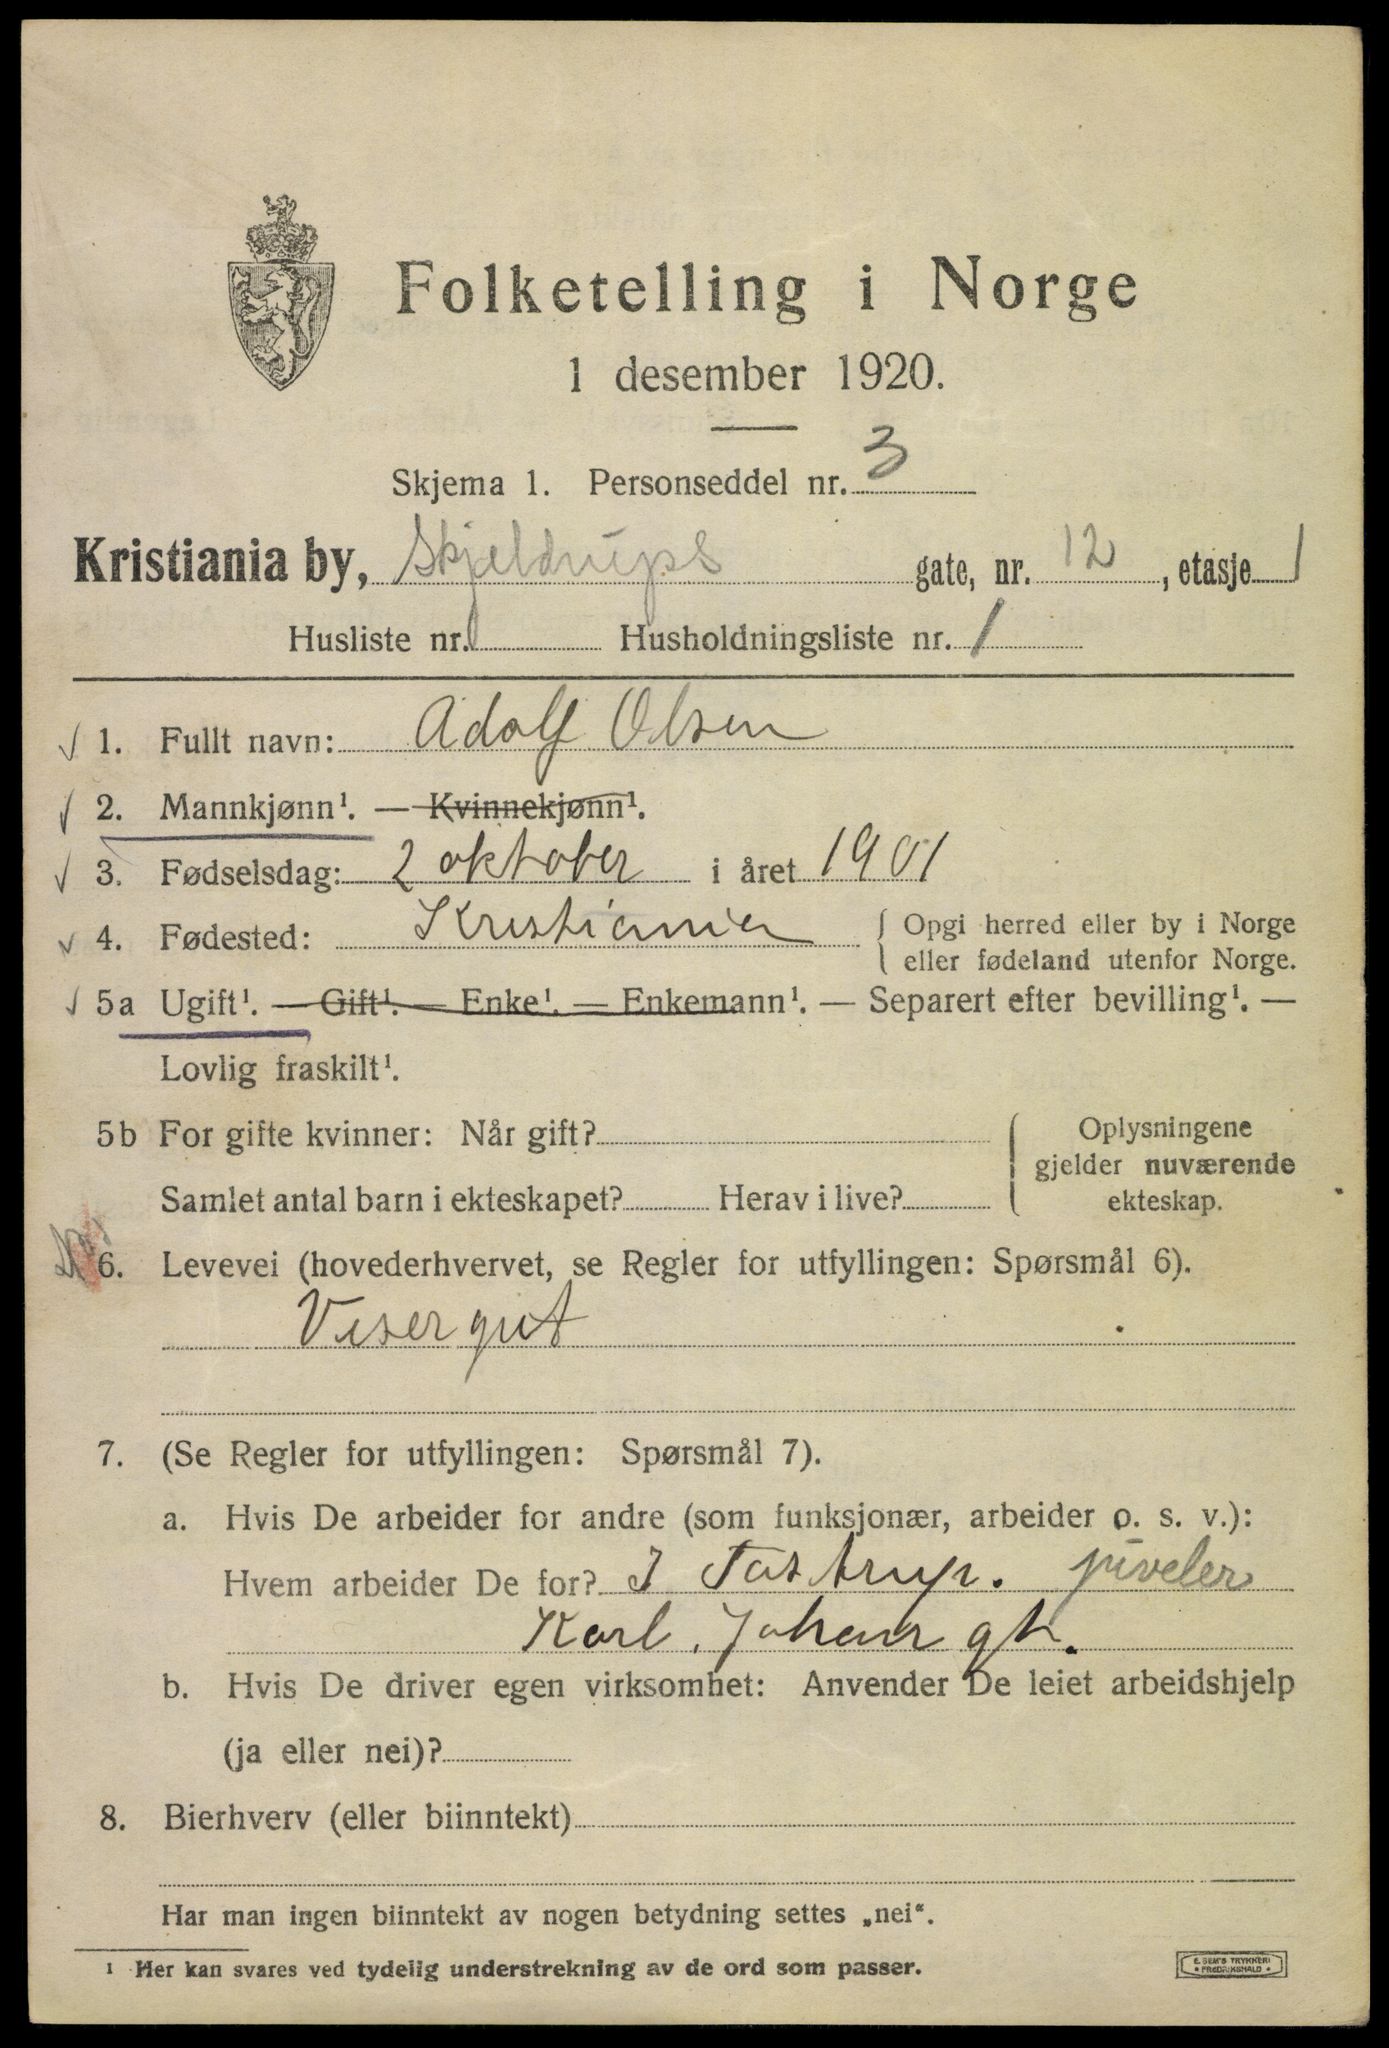 Folketelling i Norge
1 desember 1920.
Skjema 1. Personseddel nr. 3
Kristiania by, Skjeldrups gate, nr. 12, etasje 1
Husliste nr. 1 Husholdningsliste nr. 1
1. Fullt navn: Adolf Olsen
2. Mannkjønn¹. — Kvinnekjønn¹.
3. Fødselsdag: 2 oktober i året 1901
4. Fødested: Kristiania { Opgi herred eller by i Norge
eller fødeland utenfor Norge.
5a Ugift¹. — Gift¹. — Enke¹. — Enkemann¹. — Separert efter bevilling¹. —
Lovlig fraskilt¹.
5b For gifte kvinner: Når gift?
Samlet antal barn i ekteskapet? Herav i live?
{ Oplysningene
gjelder nuværende
ekteskap.
6. Levevei (hovederhvervet, se Regler for utfyllingen: Spørsmål 6).
Visergut
7. (Se Regler for utfyllingen: Spørsmål 7).
a. Hvis De arbeider for andre (som funksjonær, arbeider o. s. v.):
Hvem arbeider De for? J Tostrup. juveler
Karl. Johans gt.
b. Hvis De driver egen virksomhet: Anvender De leiet arbeidshjelp
(ja eller nei)?
8. Bierhverv (eller biinntekt)
Har man ingen biinntekt av nogen betydning settes „nei“.
¹ Her kan svares ved tydelig understrekning av de ord som passer.
E. SEM'S TRYKKERI
FREDRIKSHALD